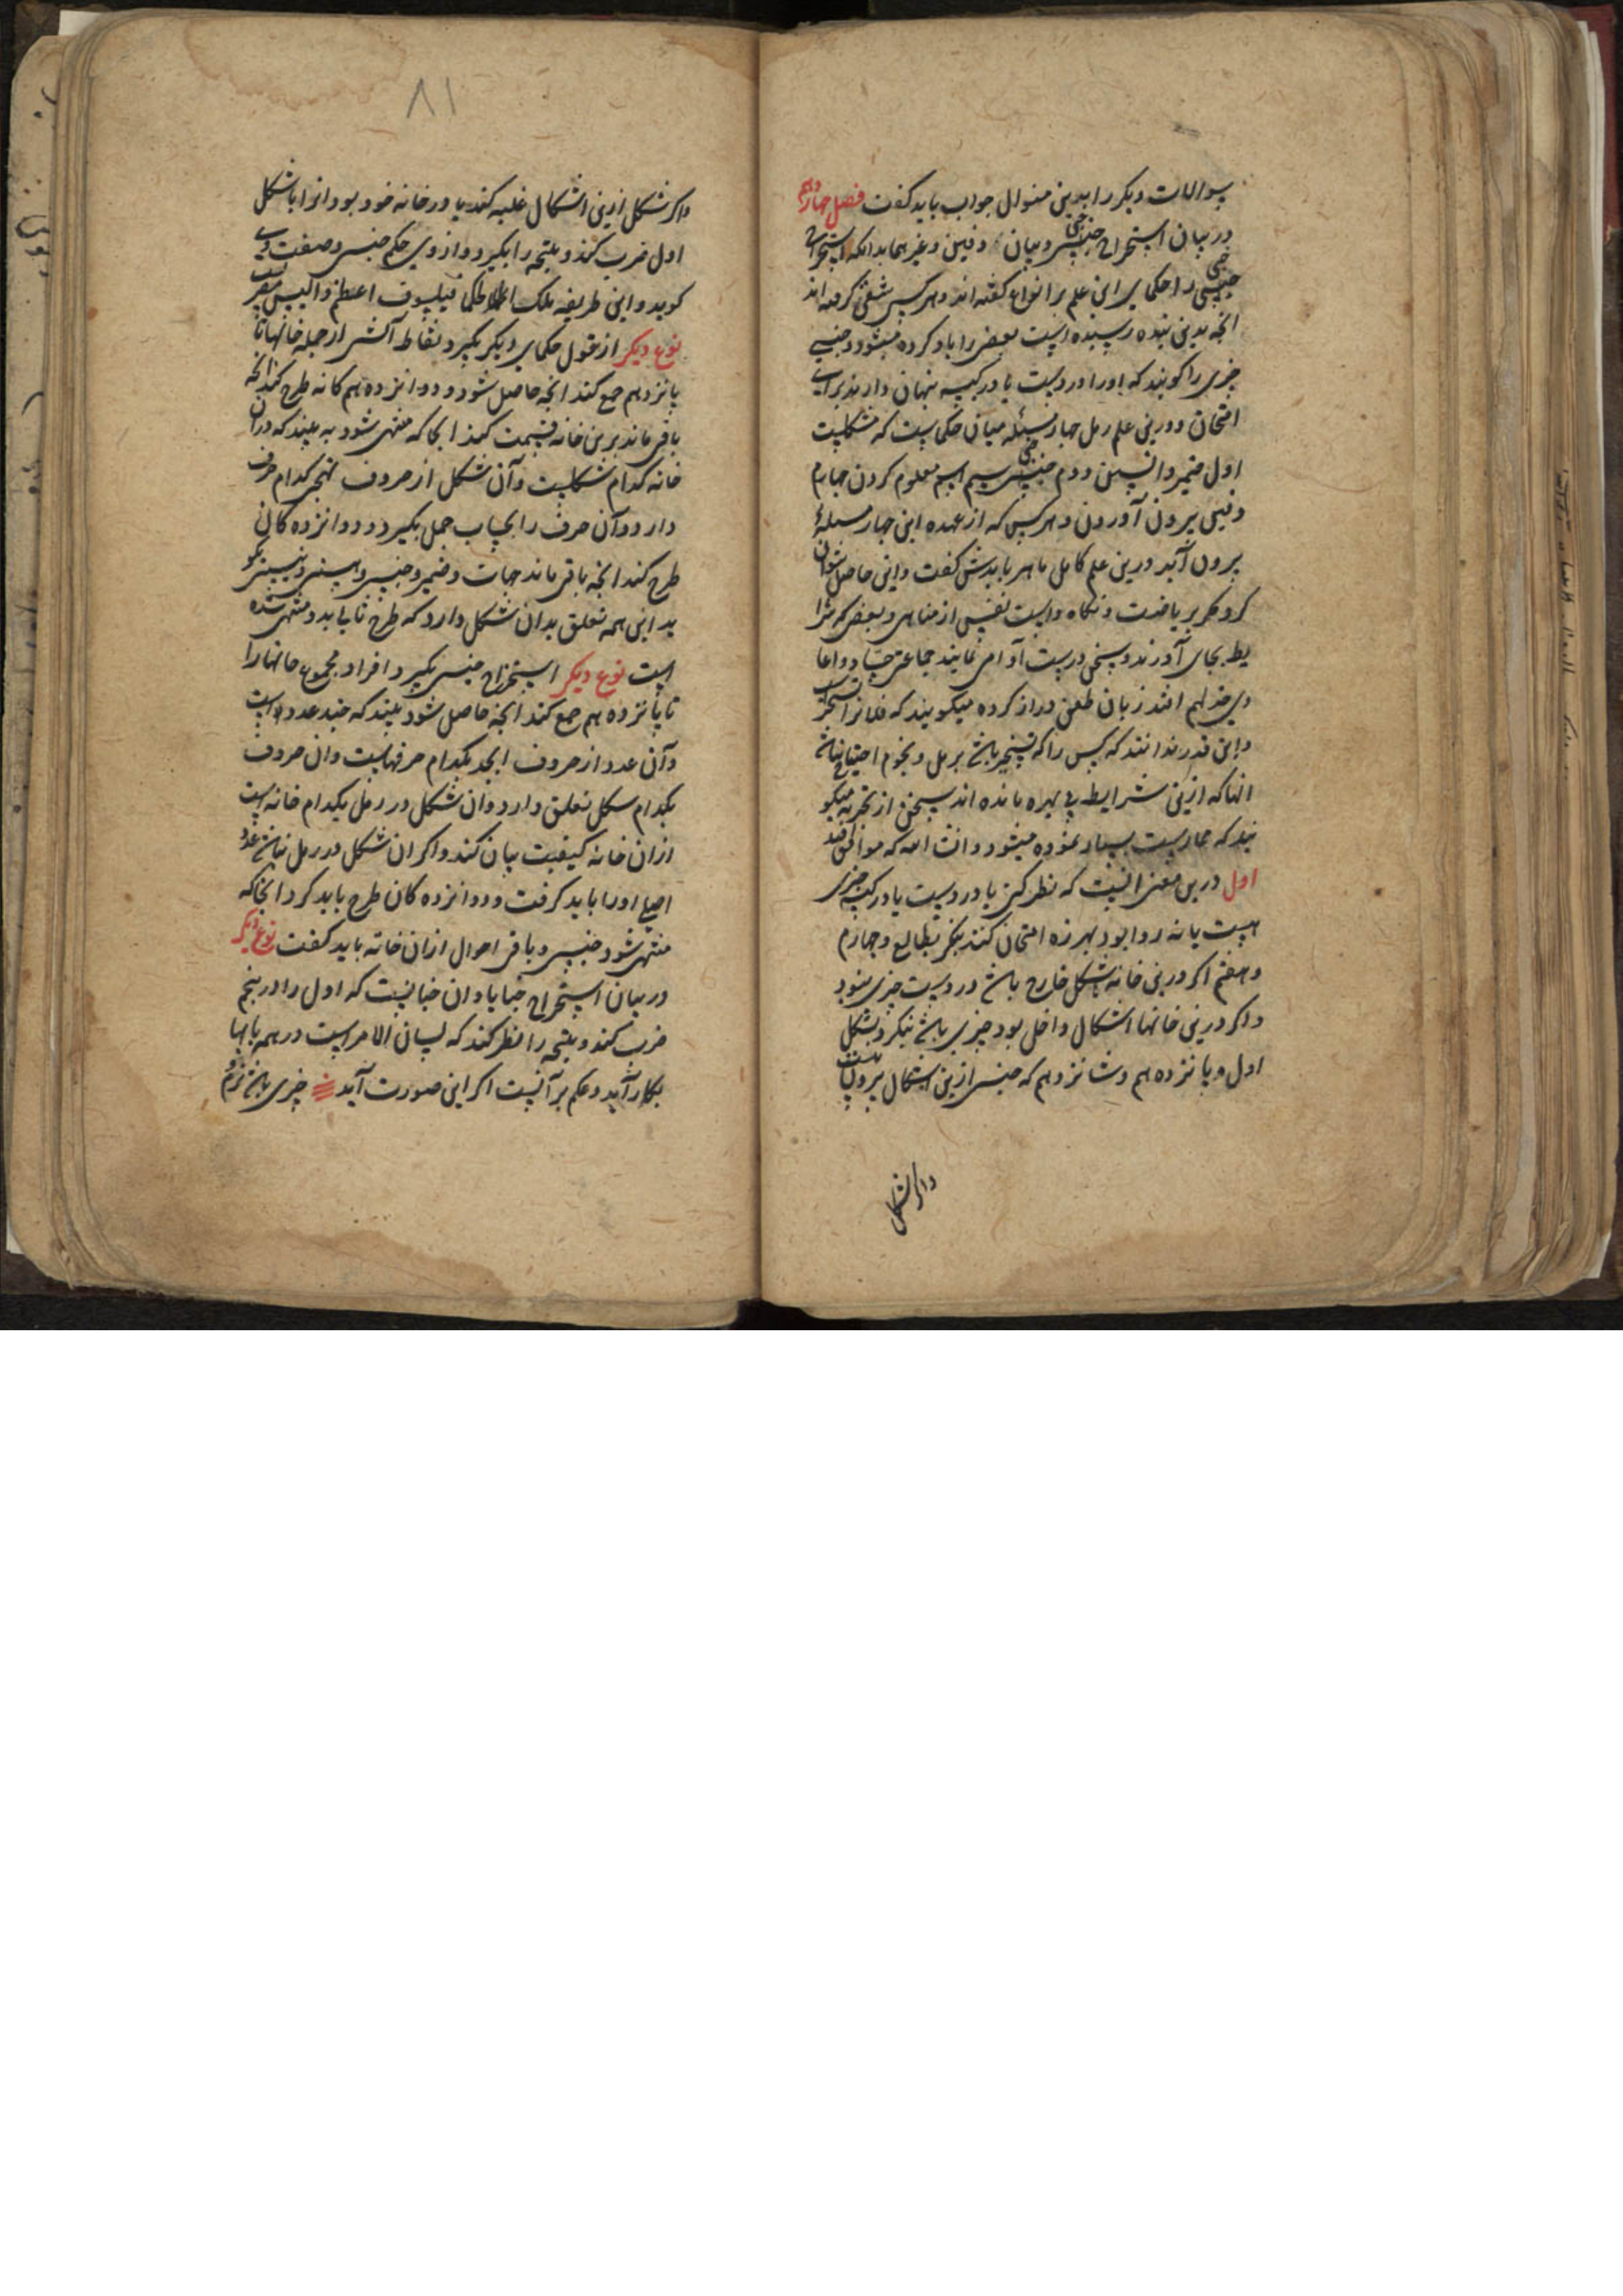 سوالات دیکر را بدین منوال جواب باید کفت فصل چهاردهم
در بیان استخراج خبی و بیان دفین و غیرهما بدانکه استخراج
خبی را حکمای این علم بر انواع کفته اند و هر کس شقی کرفته اند
انچه بدین بنده رسیده است بعضی را یاد کرده میشود و خبی
چیزی را کویند که اورا در دست یا در کیسه پنهان دارند برای
امتحان و درین علم رمل چهار مسئله میان حکماست که مشکلست
اول ضمیر دانستن دوم خبی سیم اسم معلوم کردن چهارم
دفین بیرون آوردن و هر کس که از عهده این چهار مسئلهٔ
برون آید درین علم کامل ماهر بایدش کفت و این حاصل نتوان
کرد مکر بریاضت و نکاه داشت نفس از مناهی و بعضی که شرا
یط بجای آورند و سخن درست ادا می نمایند جماعتی
زبان طعن دراز کرده میکویند که فلانرا تسخیر
و این قدر ندانند که کس را که تسخیر باشد برمل و نجوم احتیاج نباشد
انها که ازین شرایط بی بهره مانده اند سخن از تجربه میکو
یند که ممارست بسیار نموده میشود و انشا الله که موافق افتد
اول درین معنی انست که نظر کنی تا در دست یا در کیسه چیزی
هست یا نه روا بود بهرزه امتحان کنند بنکر بطالع و چهارم
و هفتم اکر درین خانه شکل خارج باشد در دست چیزی نبود
و اکر درین خانها اشکال داخل بود چیزی باشد بنکر بشکل
اول و پانزدهم و شانزدهم که جنس ازین اشکال بیرون
واکر شکل
٨١
واکر شکل ازین اشکال غلبه کند یا در خانه خود بود انرا با شکل
اول ضرب کند و نتیجه را بکیرد و از وی حکم جنس و صفت وی
کوید و این طریقه ملک الحکما فیلسوف اعظم
نوع دیکر از قول حکمای دیکر بکیرد نقاط آتش از جمله خانها تا
پانزدهم جمع کند انچه حاصل شود دوانزده کانه طرح کند انچه
باقی ماند برین خانه قسمت کند انجا که منتهی شود به بیند که دران
خانه کدام شکلست و آن شکل از حروف تهجی کدام حرف
دارد و آن حرف را بحساب جمل بکیرد و دوانزده کان
طرح کند انچه باقی ماند جهات و ضمیر و جنس و هستی و نیستی بکو
ید این همه تعلق بدان شکل دارد که طرح تا بدو منتهی شده
است نوع دیکر استخراج جنس بکیرد افراد مجموع خانها را
تا پانزدهم جمع کند انچه حاصل شود ببیند که چند عدد است
و آن عدد از حروف ابجد بکدام حرفهاست وان حروف
بکدام شکل تعلق دارد وان شکل در رمل بکدام خانه است
ازان خانه کیفیت بیان کند و اکر ان شکل در رمل نباشد عدد
اصلی اورا باید کرفت و دوانزده کان طرح باید کرد انجا که
منتهی شود جنس و باقی احوال ازان خانه باید کفت نوع دیکر
در بیان استخراج خبایا و ان چنانست که اول را در پنجم
ضرب کند و نتیجه را نظر کند که لسان الامر است در همه بابها
بکار آید و حکم بر آنست اکر این صورت آید چیزی باشد